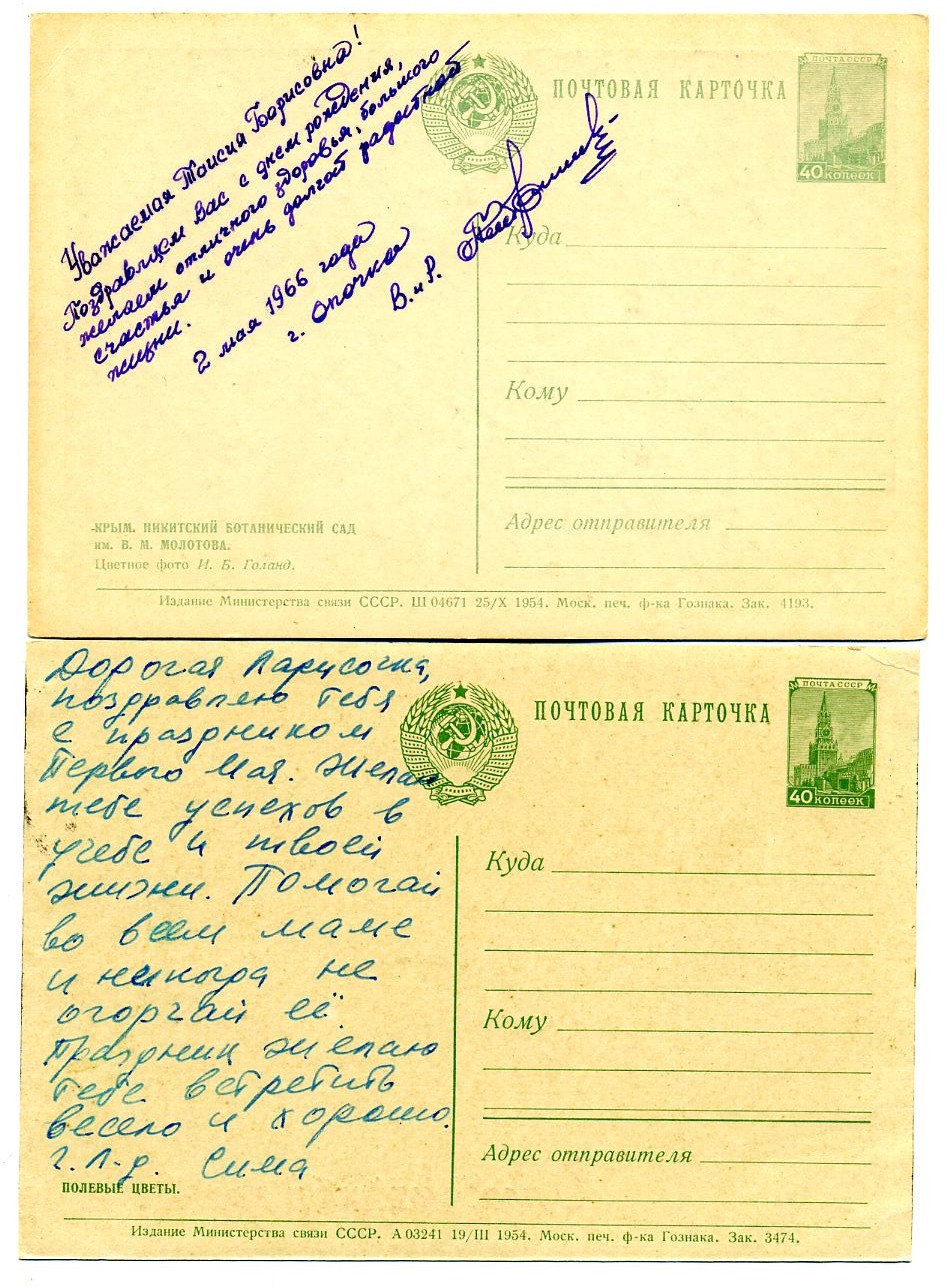 Уважаемая Таисия Борисовна!
Поздравляем Вас с днем рождения,
желаем отличного здоровья, большого
счастья и очень долгой радостной
жизни.
2 мая 1966 года
г. Опочка
В. и Р.
ПОЧТОВАЯ КАРТОЧКА
ПОЧТА СССР
40 КОПЕЕК
Куда
Кому
Адрес отправителя
КРЫМ. НИКИТСКИЙ БОТАНИЧЕСКИЙ САД
им. В. М. МОЛОТОВА.
Цветное фото И. Б. Голанд.
Издание Министерства связи СССР. Ш 04671 25/X 1954. Моск. печ. ф-ка Гознака. Зак. 4193.
Дорогая Ларисочка,
поздравляю тебя
с праздником
Первого Мая. Желаю
тебе успехов в
учебе и твоей
жизни. Помогай
во всем маме
и никогда не
огорчай её.
Праздник желаю
тебе встретить
весело и хорошо.
г. Л-д. Сима
ПОЧТОВАЯ КАРТОЧКА
ПОЧТА СССР
40 КОПЕЕК
Куда
Кому
Адрес отправителя
ПОЛЕВЫЕ ЦВЕТЫ.
Издание Министерства связи СССР. А 03241 19/III 1954. Моск. печ. ф-ка Гознака. Зак. 3474.